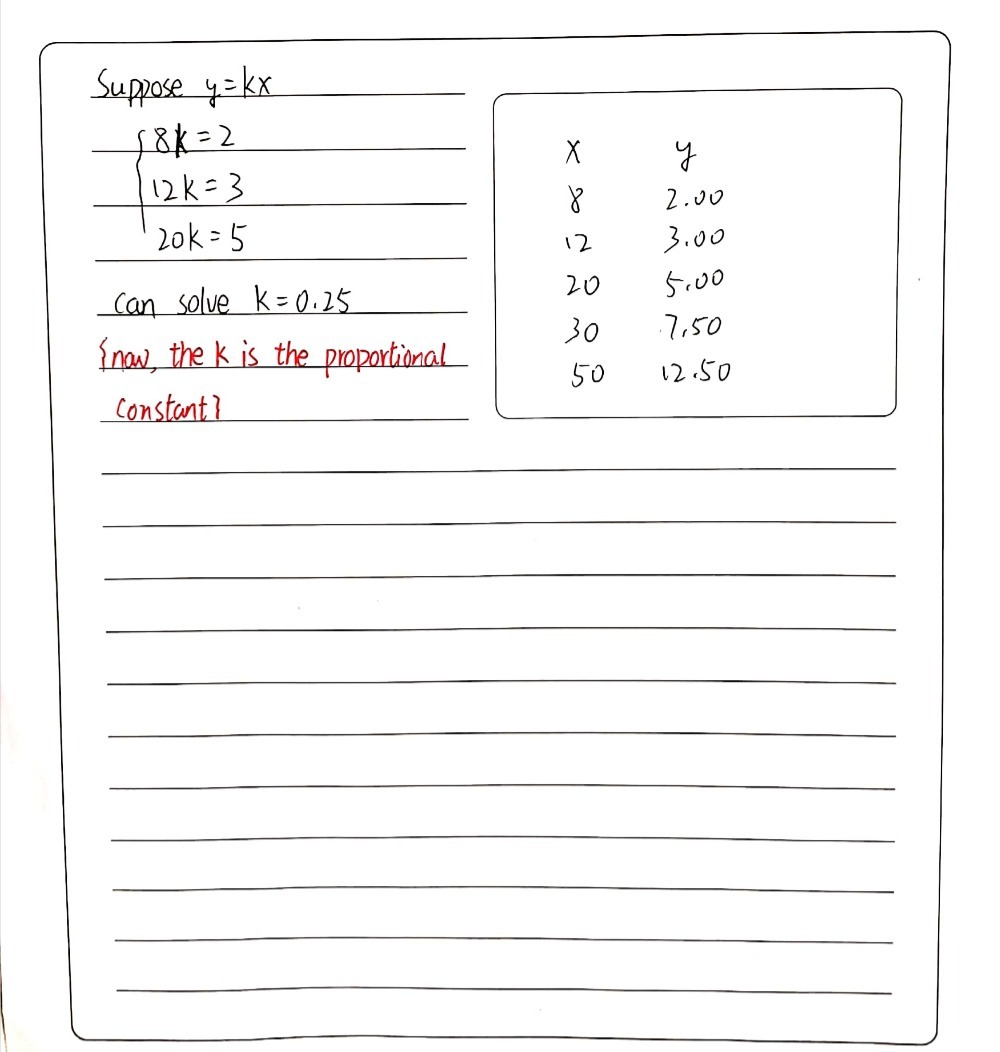 Suppose y=kx
8k=2
12k=3
20k=5
can solve k=0.25
{now, the k is the proportional
constant}
x y
8 2.00
12 3.00
20 5.00
30 7.50
50 12.50